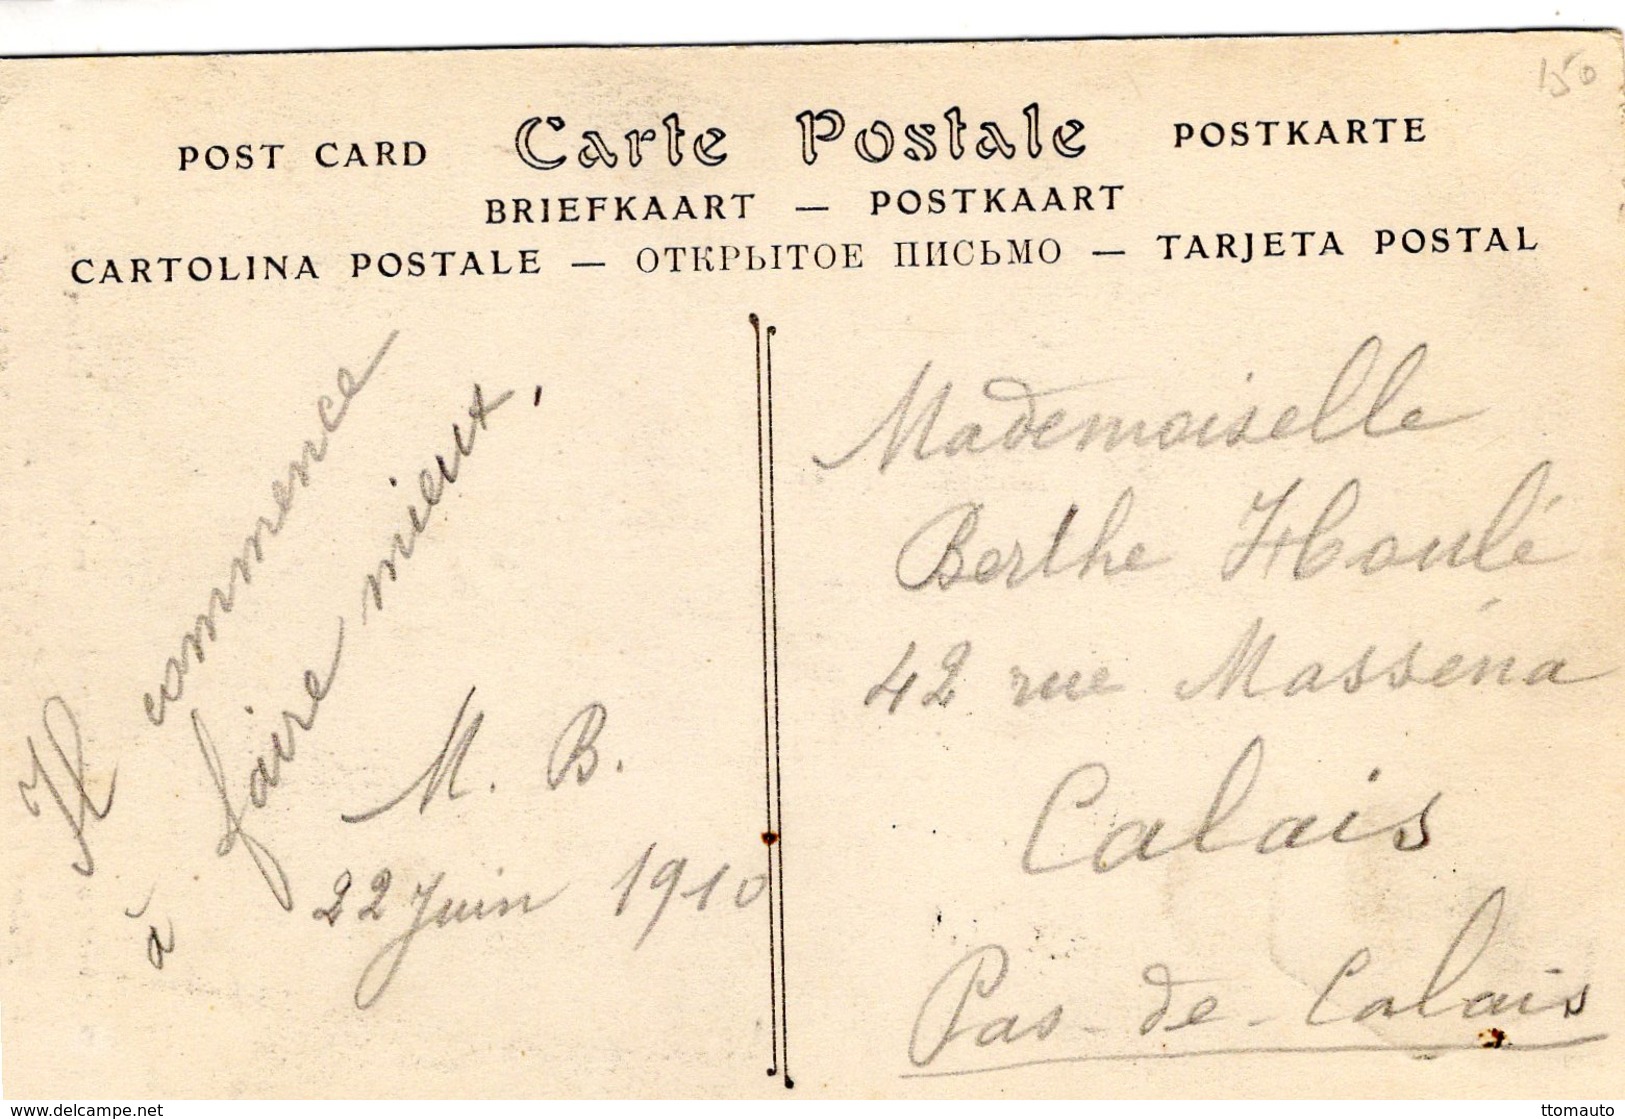 150
POST CARD Carte Postale POSTKARTE
BRIEFKAART — POSTKAART
CARTOLINA POSTALE — ОТКРЫТОЕ ПИСЬМО — TARJETA POSTAL
Il commence
à faire mieux,
M. B.
22 Juin 1910
Mademoiselle
Berthe Houlé
42 rue Masséna
Calais
Pas-de-Calais
www.delcampe.net
ttomauto